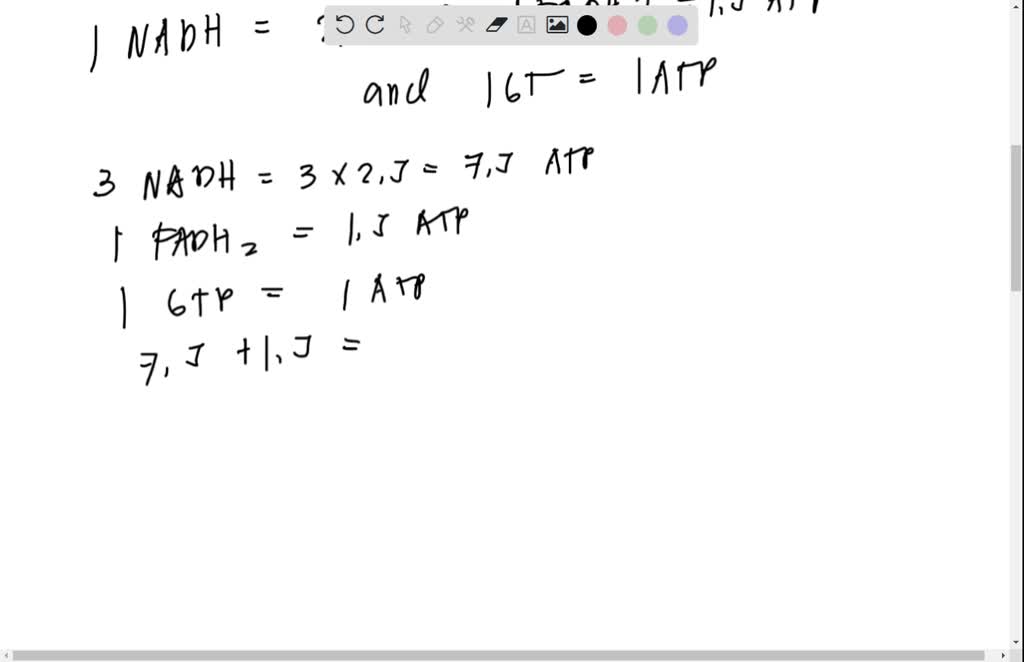 1 NADH =
and 1 GT = 1 ATP
3 NADH = 3 x 2,5 = 7,5 ATP
1 FADH2 = 1,5 ATP
1 GTP = 1 ATP
7,5 + 1,5 =